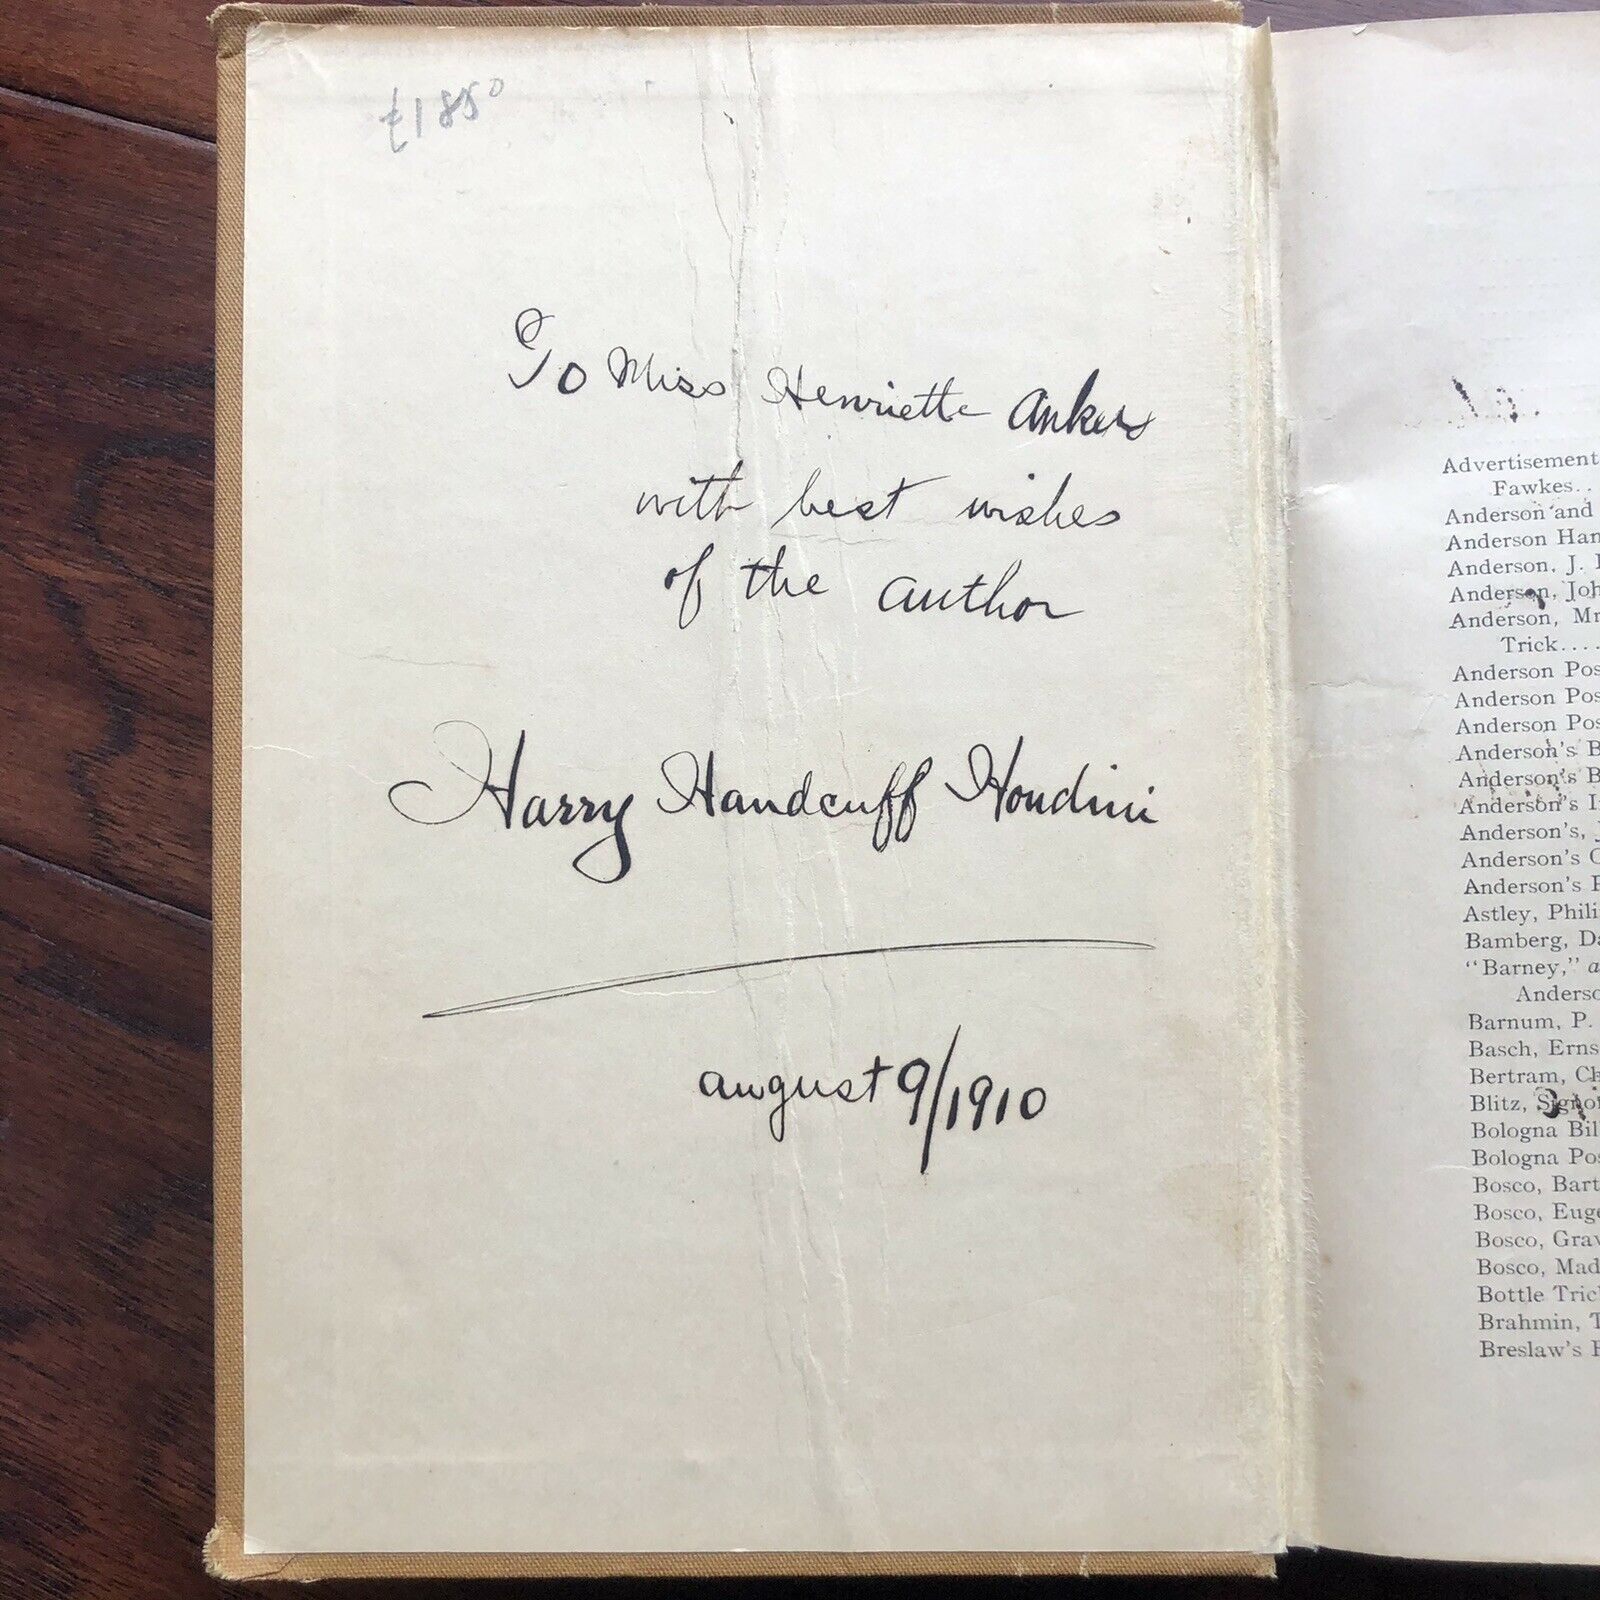 £1850
To Miss Henriette Ankers
with best wishes
of the author
Harry Handcuff Houdini
august 9/1910
Advertisement
Fawkes..
Anderson and
Anderson Han
Anderson, J.
Anderson, Joh
Anderson, Mr
Trick....
Anderson Pos
Anderson Pos
Anderson Pos
Anderson's B
Anderson's B
Anderson's I
Anderson's, J
Anderson's
Anderson's
Astley, Phili
Bamberg, Da
"Barney," a
Anderso
Barnum, P.
Basch, Erns
Bertram, Ch
Blitz, Signor
Bologna Bil
Bologna Pos
Bosco, Bart
Bosco, Euge
Bosco, Grav
Bosco, Mad
Bottle Tric
Brahmin, T
Breslaw's